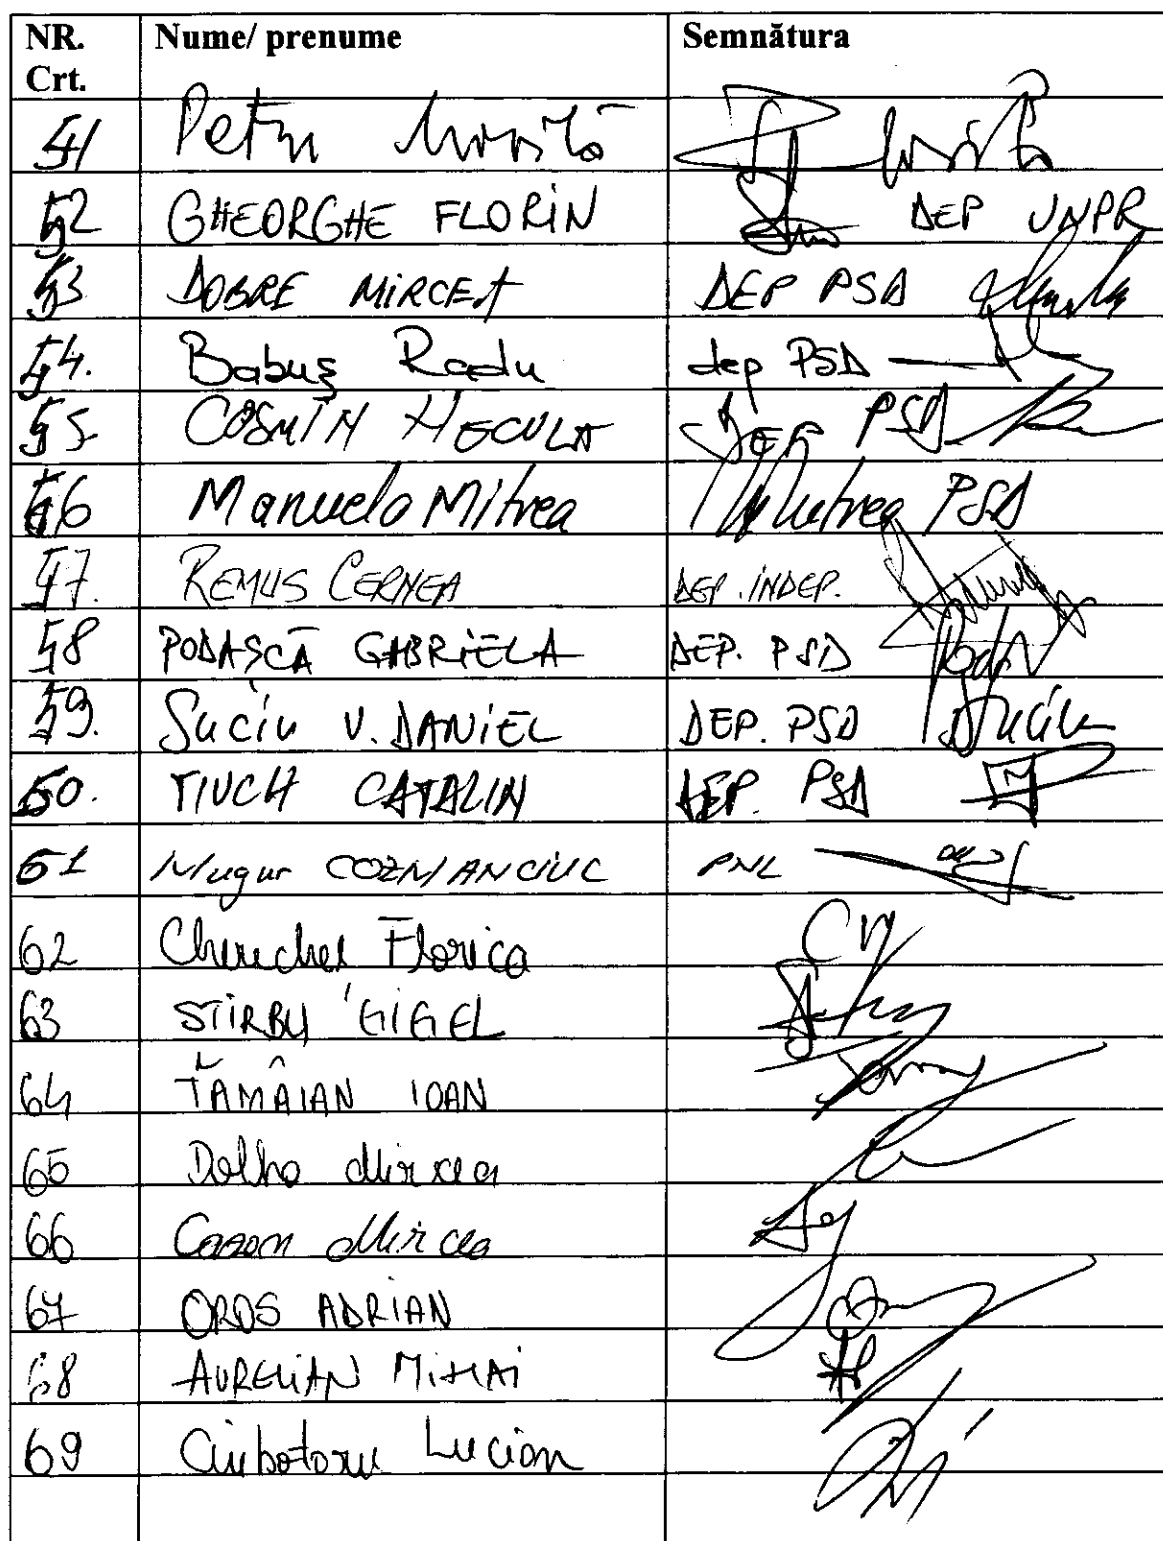 NR. Crt. Nume/ prenume Semnătura
51 Petru
52 GHEORGHE FLORIN DEP UNPR
53 DOBRE MIRCEA DEP PSD
54. Babuș Radu dep PSD
55 COSMIN NECULA DEP PSD
56 Manuela Mitrea Mitrea PSD
57. REMUS CERNEA DEP. INDEP.
58 PODAȘCĂ GABRIELA DEP. PSD
59. Suciu V. DANIEL DEP. PSD Suciu
60. TIUCH CATALIN DEP. PSD
61 Mugur COZMANCIUC PNL
62 Cherecheș Florica
63 STIRBU GIGEL
64 TĂMÂIAN IOAN
65 Dolha Mircea
66 Cazan Mircea
67 OROS ADRIAN
68 AURELIAN MIHAI
69 Ciubotaru Lucian